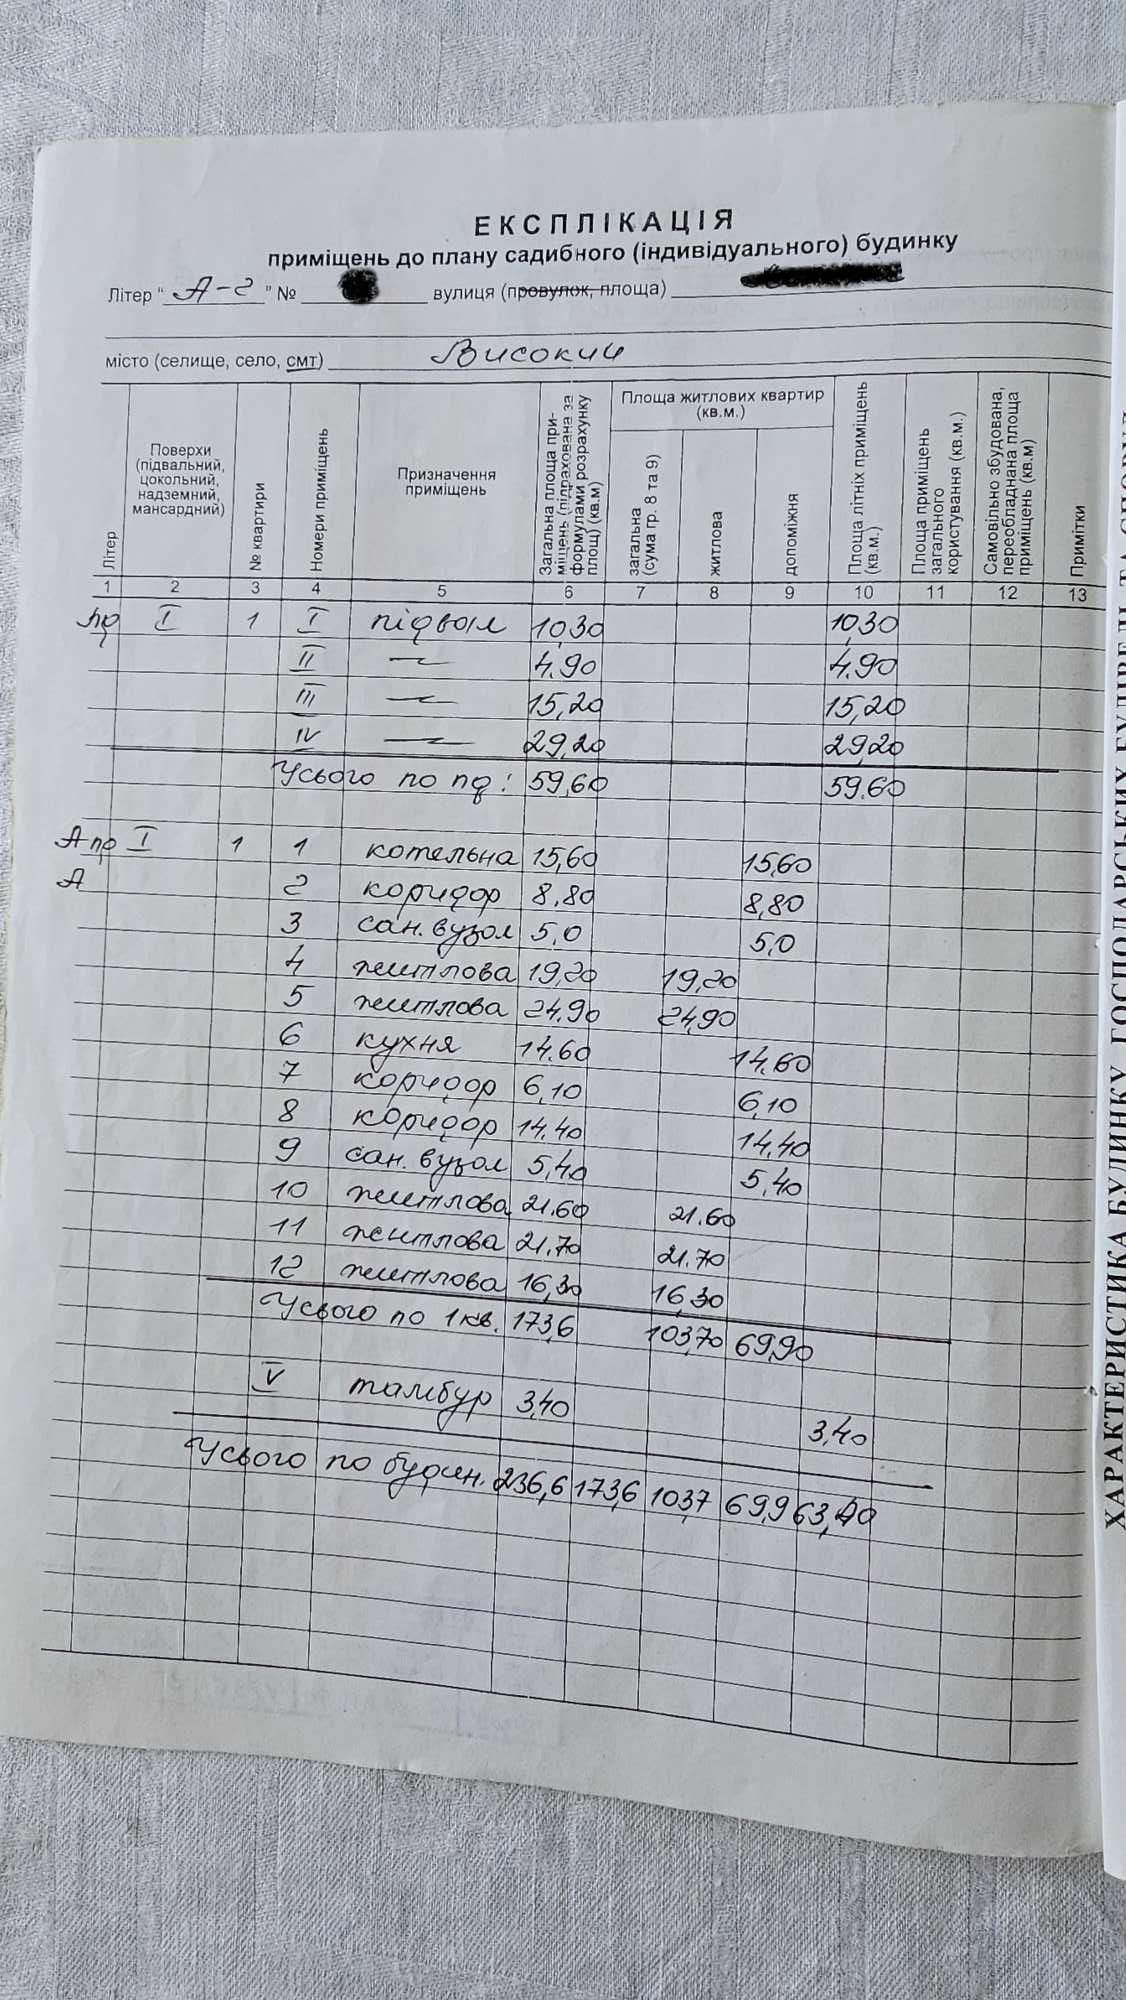 ЕКСПЛІКАЦІЯ
приміщень до плану садибного (індивідуального) будинку
Літер " А-2 " № вулиця (провулок, площа)
місто (селище, село, смт) Високий
Літер
Поверхи (підвальний, цокольний, надземний, мансардний)
№ квартири
Номери приміщень
Призначення приміщень
Загальна площа приміщень (підрахована за формулами розрахунку площ) (кв.м)
Площа житлових квартир (кв.м.)
загальна (сума гр. 8 та 9)
житлова
допоміжна
Площа літніх приміщень (кв.м.)
Площа приміщень загального користування (кв.м)
Самовільно збудована, переобладнана площа приміщень (кв.м)
Примітки
1 2 3 4 5 6 7 8 9 10 11 12 13
пд I 1 I підвал 10,30 10,30
II 4.90 4.90
III 15,20 15,20
IV 29,20 29,20
Усього по пд: 59,60 59.60
А пд I 1 1 котельна 15,60 15,60
А 2 коридор 8,80 8,80
3 сан. вузол 5,0 5,0
4 житлова 19,20 19,20
5 житлова 24.90 24,90
6 кухня 14.60 14.60
7 коридор 6,10 6,10
8 коридор 14.40 14,40
9 сан. вузол 5,40 5,40
10 житлова 21.60 21.60
11 житлова 21.70 21.70
12 житлова 16,30 16,30
Усього по 1 кв. 173,6 103,70 69,90
V тамбур 3,40 3,40
Усього по будин. 236,6 173,6 103,7 69,9 63,00
ХАРАКТЕРИСТИКА БУДИНКУ, ГОСПОДАРСЬКИХ БУДІВЕЛЬ ТА СПОРУД